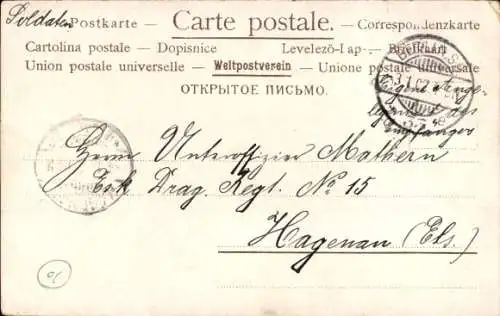 Soldaten Postkarte — Carte postale. — Correspondenzkarte
Cartolina postale — Dopisnice Levelező-Lap — Briefkaart
Union postale universelle — Weltpostverein — Unione postale universale
ОТКРЫТОЕ ПИСЬМО.
Eigene Ange-
legenheit des
Empfängers
Herrn Unteroffizier Mathern
Esk Drag. Regt. No 15
Hagenau (Els.)